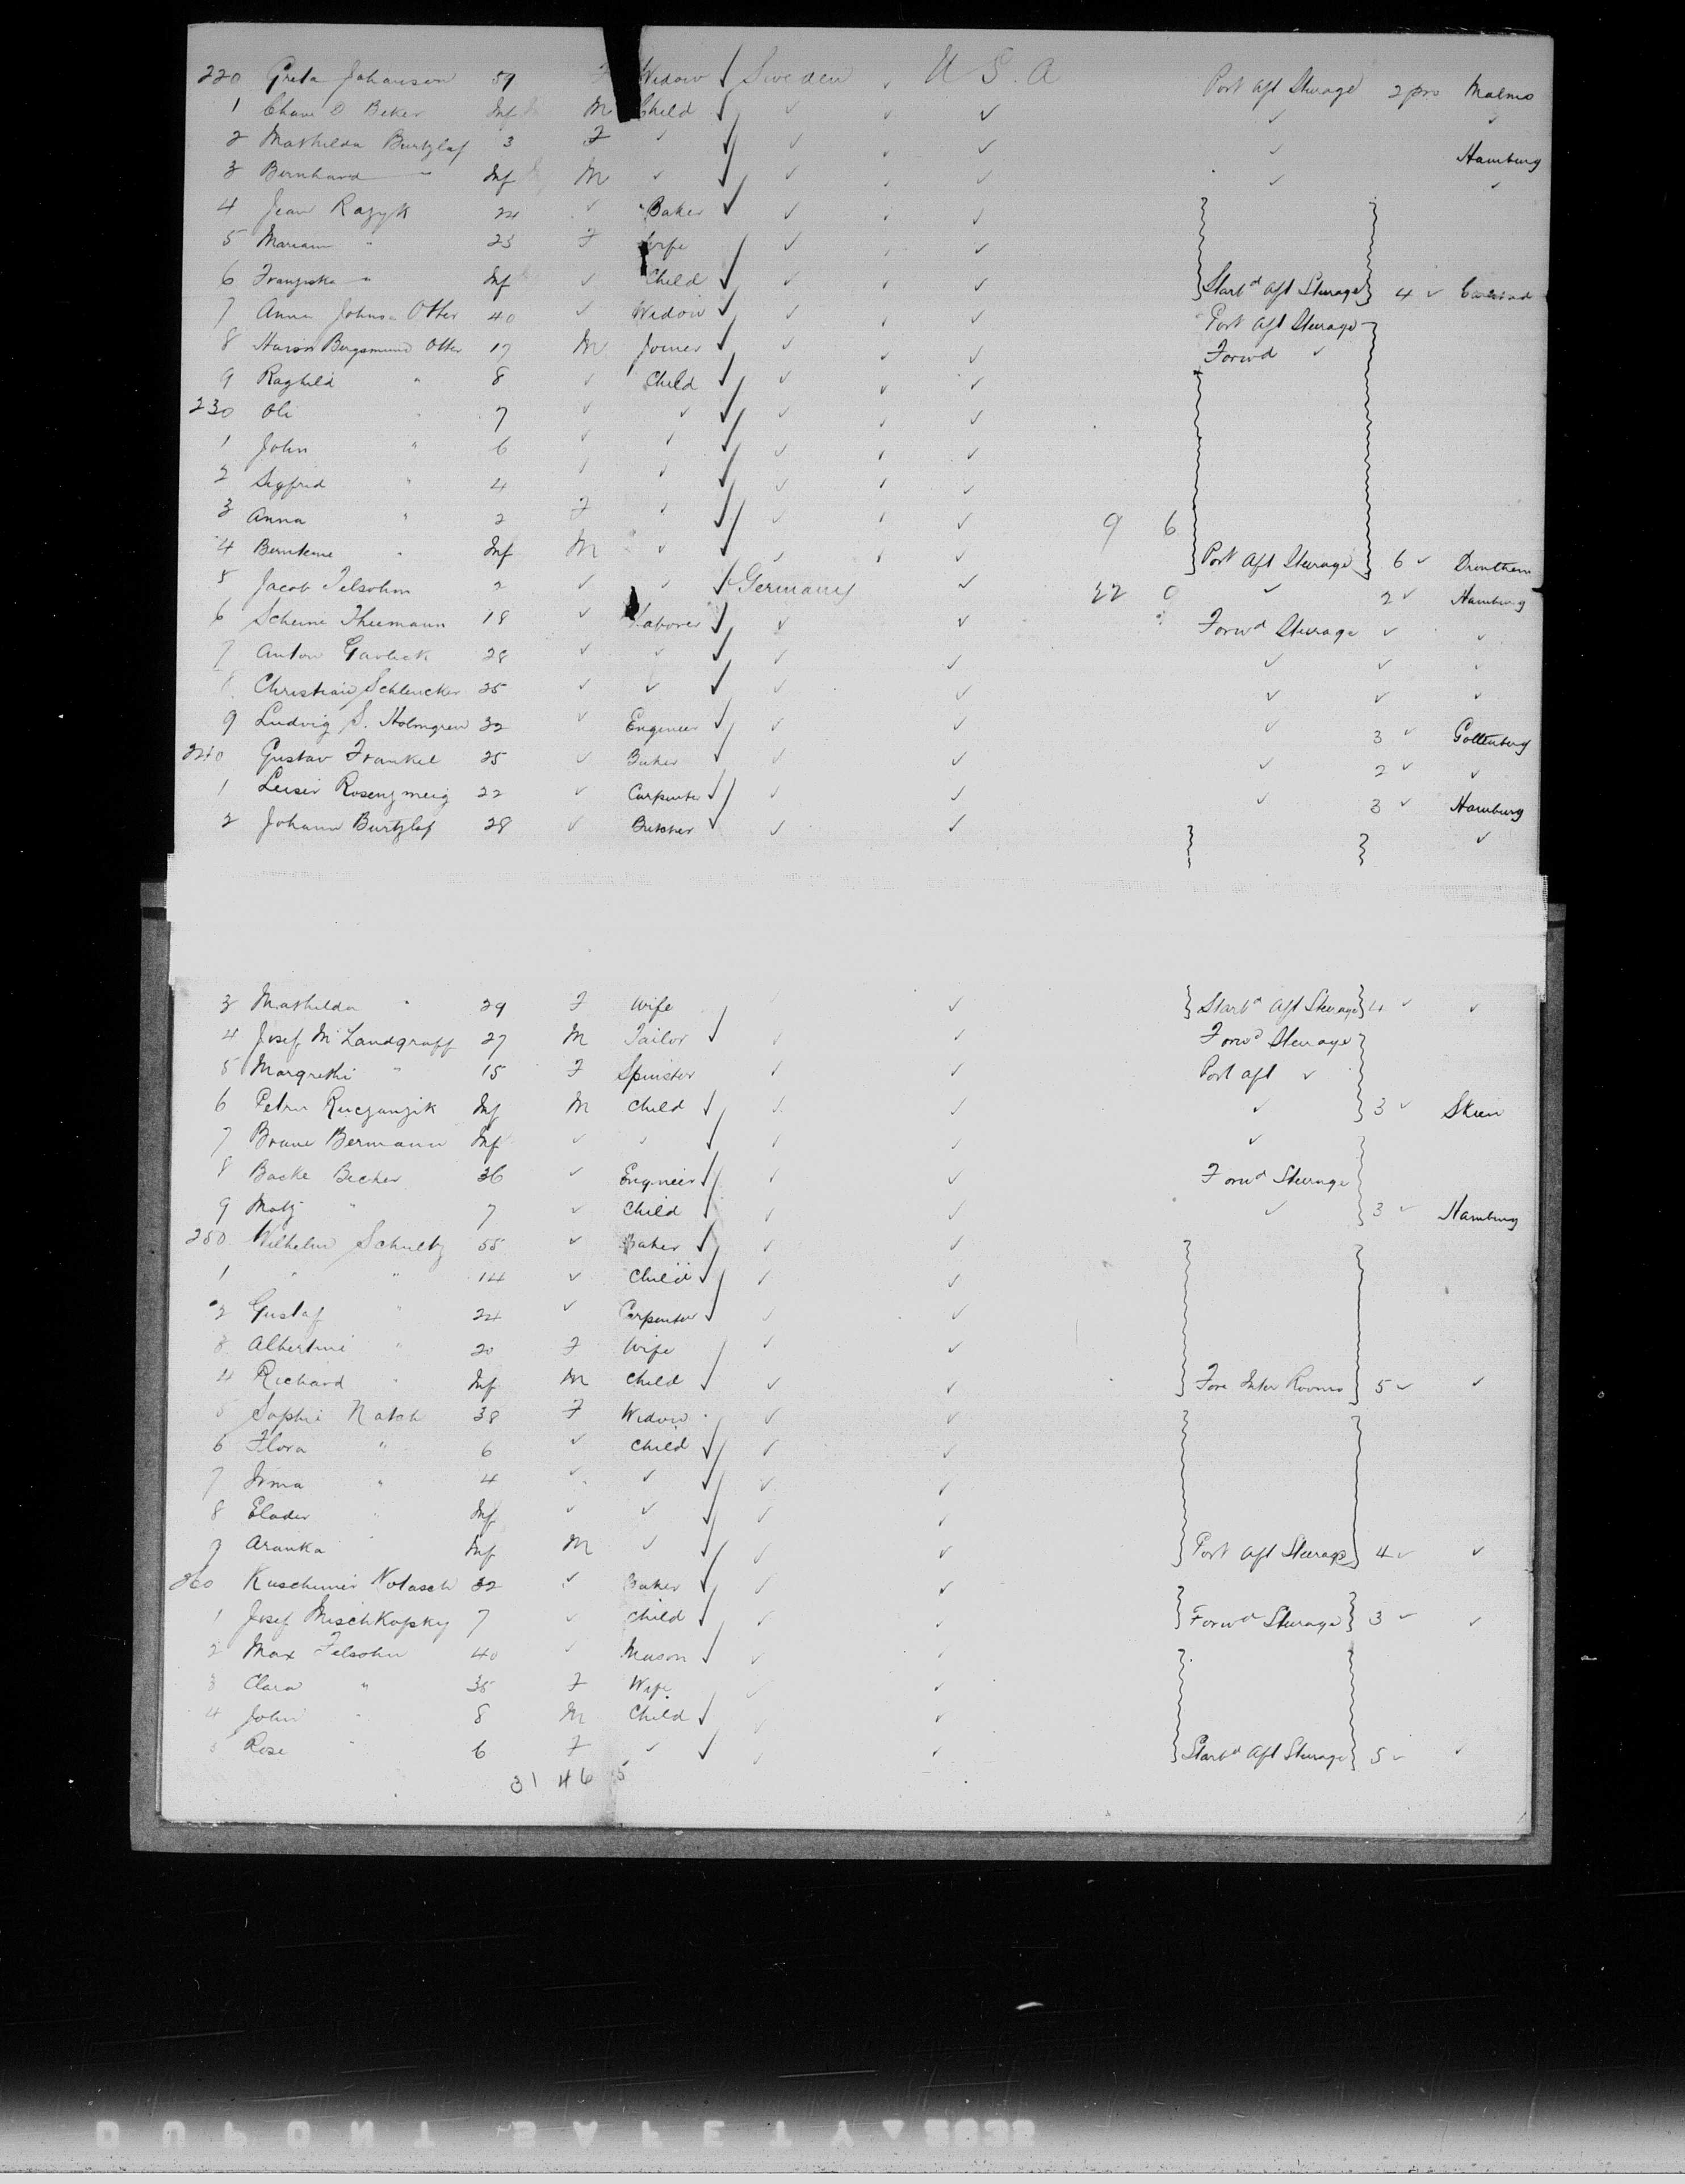 220 Greta Johanson 59 F Widow Sweden U S. A Port Aft Sterage 2 pro Malmo
1 Beker Inf M Child ✓ ✓ ✓ ✓
2 Mathilda Burtzlaf 3 F ✓ ✓ ✓ ✓ Hamburg
3 Bernhard " Inf M ✓ ✓ ✓ ✓ ✓
4 Jean Razyk 24 ✓ Baker ✓ ✓
5 Mariann " 23 F Wife ✓ ✓
6 Franziska " Inf ✓ Child ✓ ✓ Starb^d Aft Sterage 4 ✓
7 Anna Otter 40 ✓ Widow ✓ ✓ Port Aft Sterage
8 Otter 17 M Joiner ✓ ✓ Forwd ✓
9 Raghild " 8 ✓ Child ✓ ✓
230 Oli " 7 ✓ ✓ ✓ ✓
1 John " 6 ✓ ✓ ✓ ✓
2 Sigfrid " 4 ✓ ✓ ✓ ✓
3 Anna " 2 F ✓ ✓ ✓ 9 6
4 " Inf M ✓ ✓ ✓ Port Aft Sterage 6 ✓
5 Jacob 2 ✓ ✓ Germany ✓ 22 0 ✓ 2 ✓ Hamburg
6 18 ✓ Laborer ✓ ✓ Forw^d Sterage ✓ ✓
7 Anton 28 ✓ ✓ ✓ ✓ ✓ ✓ ✓
8 Christian Schlencker 25 ✓ ✓ ✓ ✓ ✓ ✓ ✓
9 Ludvig S. Holmgren 32 ✓ Engineer ✓ ✓ ✓ 3 ✓ Gottenburg
240 Gustav Frankel 25 ✓ Baker ✓ ✓ ✓ 2 ✓ ✓
1 22 ✓ Carpenter ✓ ✓ ✓ 3 ✓ Hamburg
2 Johann Burtzlaf 28 ✓ Butcher ✓ ✓ ✓
3 Mathilda " 29 F Wife ✓ Starb^d Aft Sterage 4 ✓ ✓
4 Josef M Landgraff 27 M Tailor ✓ ✓ Forw^d Sterage
5 Margrethi " 15 F Spinster ✓ ✓ Port aft ✓
6 Inf M Child ✓ ✓ ✓ 3 ✓ Skien
7 Bermann Inf ✓ ✓ ✓ ✓ ✓
8 Becher 36 ✓ Engineer ✓ ✓ Forw^d Sterage
9 " 7 ✓ Child ✓ ✓ ✓ 3 ✓ Hamburg
250 Wilhelm Schultz 55 ✓ Baker ✓ ✓
1 " " 14 ✓ Child ✓ ✓
2 Gustaf " 24 ✓ Carpenter ✓ ✓
3 Albertine " 20 F Wife ✓ ✓
4 Richard " Inf M Child ✓ ✓ Fore Inter Rooms 5 ✓ ✓
5 Sophie 38 F Widow ✓ ✓
6 Flora " 6 ✓ Child ✓ ✓
7 Irma " 4 ✓ ✓ ✓ ✓
8 " Inf ✓ ✓ ✓ ✓
9 Aranka " Inf M ✓ ✓ ✓ Port Aft Sterage 4 ✓ ✓
260 32 ✓ Baker ✓ ✓
1 Josef Mischkopsky 7 ✓ Child ✓ ✓ Forw^d Sterage 3 ✓ ✓
2 Max Felsohn 40 ✓ Mason ✓ ✓
3 Clara " 35 F Wife ✓ ✓
4 John " 8 M Child ✓ ✓
5 Rose " 6 F ✓ ✓ ✓ Starb^d Aft Sterage 5 ✓ ✓
31 46 5
DUPONT SAFETY